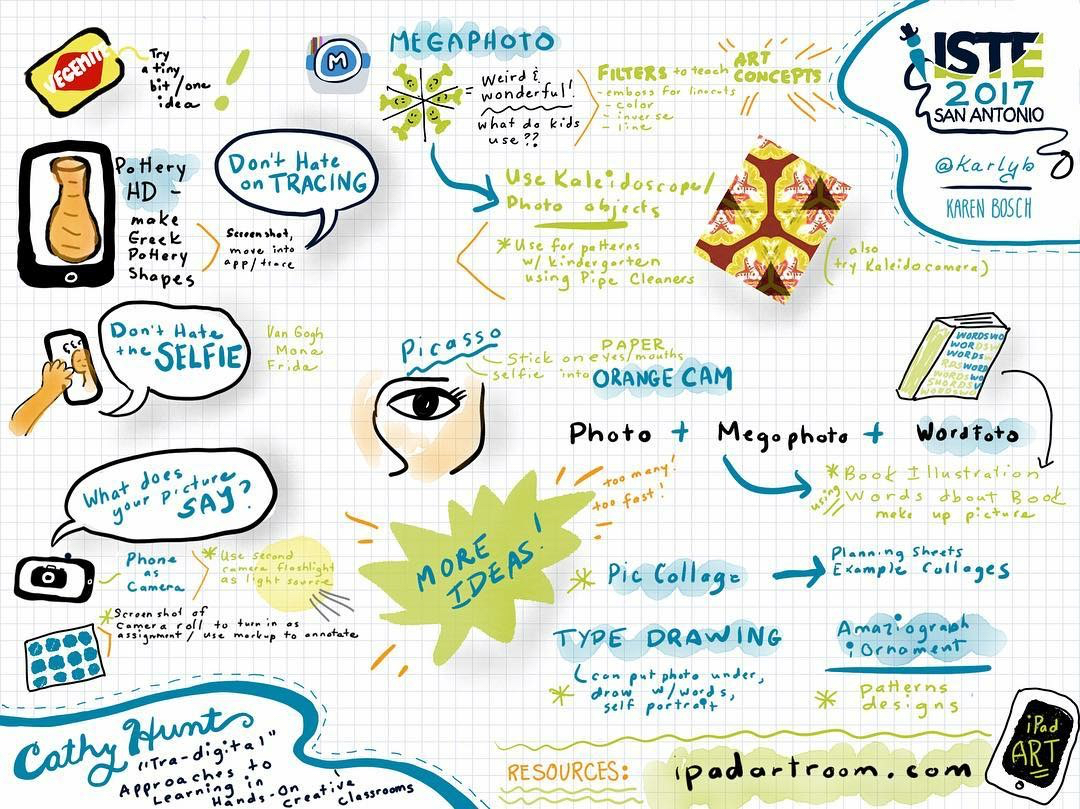 VEGEMITE
Try
a tiny
bit/one
idea
!
M
MEGAPHOTO
Weird &
wonderful!
what do kids
use??
FILTERS to teach ART
CONCEPTS
- emboss for linocuts
- color
- inverse
- line
ISTE
2017
SAN ANTONIO
@karlyb
KAREN BOSCH
Pottery
HD -
make
Greek
Pottery
Shapes
Screenshot,
move into
app/trace
Don't Hate
on TRACING
Use Kaleidoscope/
Photo objects
*Use for patterns
w/ kindergarten
using Pipe Cleaners
(also
try Kaleidocamera)
Don't Hate
the SELFIE
Van Gogh
Mona
Frida
Picasso
Stick on eyes/mouths
selfie into
PAPER
ORANGE CAM
WORDSWO
WORDSWO
WORDSW
Photo + Megaphoto + WordFoto
*Book Illustration
using Words about Book
make up picture
What does
your picture
SAY?
Phone
as
Camera
*Use second
camera flashlight
as light source
*Screenshot of
Camera roll to turn in as
assignment / use markup to annotate
MORE
IDEAS!
too many!
too fast!
* Pic Collage
Planning Sheets
Example Collages
TYPE DRAWING
can put photo under,
* draw w/words,
self portrait
Amaziograph
iOrnament
* patterns
designs
Cathy Hunt
"Tra-digital"
Approaches to
Learning in
Hands-On Creative
Classrooms
RESOURCES: ipadartroom.com
iPad
ART